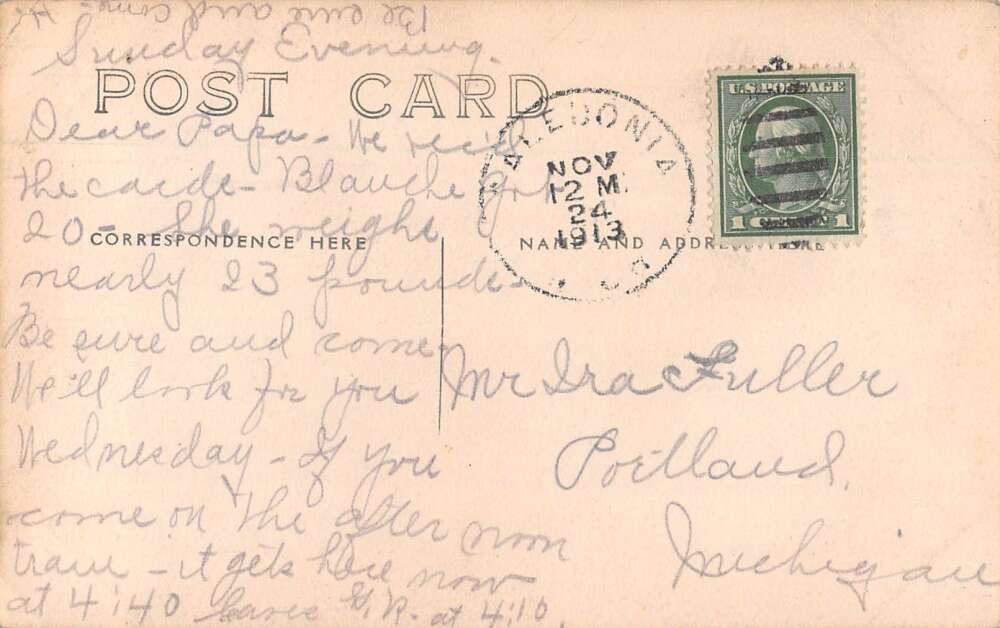 Be sure and come -
Sunday Evening.
POST CARD
Dear Papa - We rec'd
the cards - Blanche got
20 - She weighs
nearly 23 pounds -
Be sure and come
We'll look for you
Wednesday - If you
come on the after noon
train - it gets here now
at 4:40 leaves G.R. at 4:10
CORRESPONDENCE HERE
NAME AND ADDRESS HERE
CALEDONIA
NOV
12 M.
24
1913
U.S. POSTAGE
1 1
Mr Ira Fuller
Portland,
Michigan